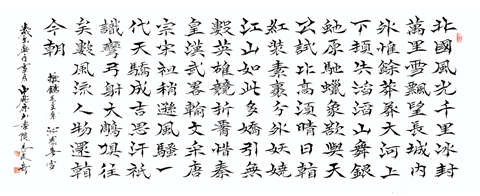 北國風光千里冰封
萬里雪飄望長城內
外惟餘莽莽大河上
下頓失滔滔山舞銀
蛇原馳蠟象欲與天
公試比高須晴日看
紅裝素裹分外妖嬈
江山如此多嬌引無
數英雄競折腰惜秦
皇漢武略輸文采唐
宗宋祖稍遜風騷一
代天驕成吉思汗祇
識彎弓射大鵰俱往
矣數風流人物還看
今朝
錄毛主席 沁園春雪